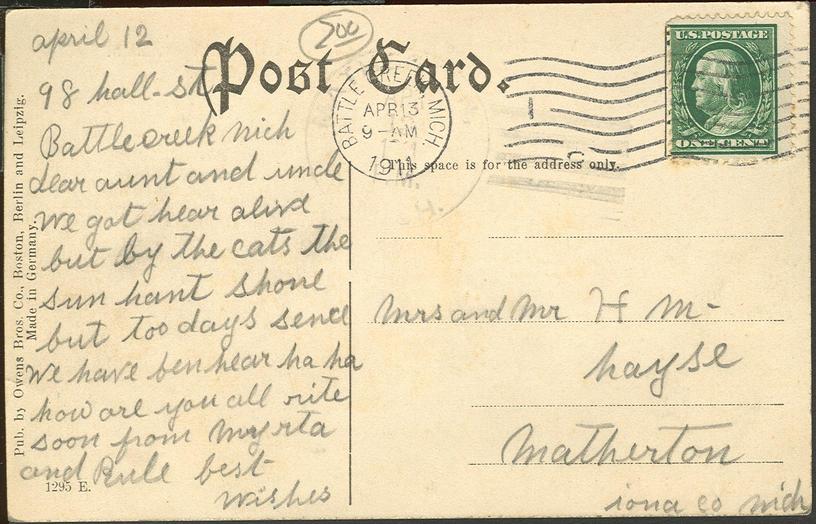 500
Post Card.
U.S. POSTAGE
ONE CENT
BATTLE CREEK, MICH.
APR 13
9 - AM
1911
This space is for the address only.
Pub. by Owens Bros. Co., Boston, Berlin and Leipzig.
Made in Germany.
april 12
98 hall-st
Battlecreek mich
dear aunt and uncle
we got hear alive
but by the cats the
sun hant shone
but too days sence
we have ben hear ha ha
how are you all rite
soon from Myrta
and Rule best
wishes
1295 E.
Mrs and Mr H M-
hayse
Matherton
iona co mich